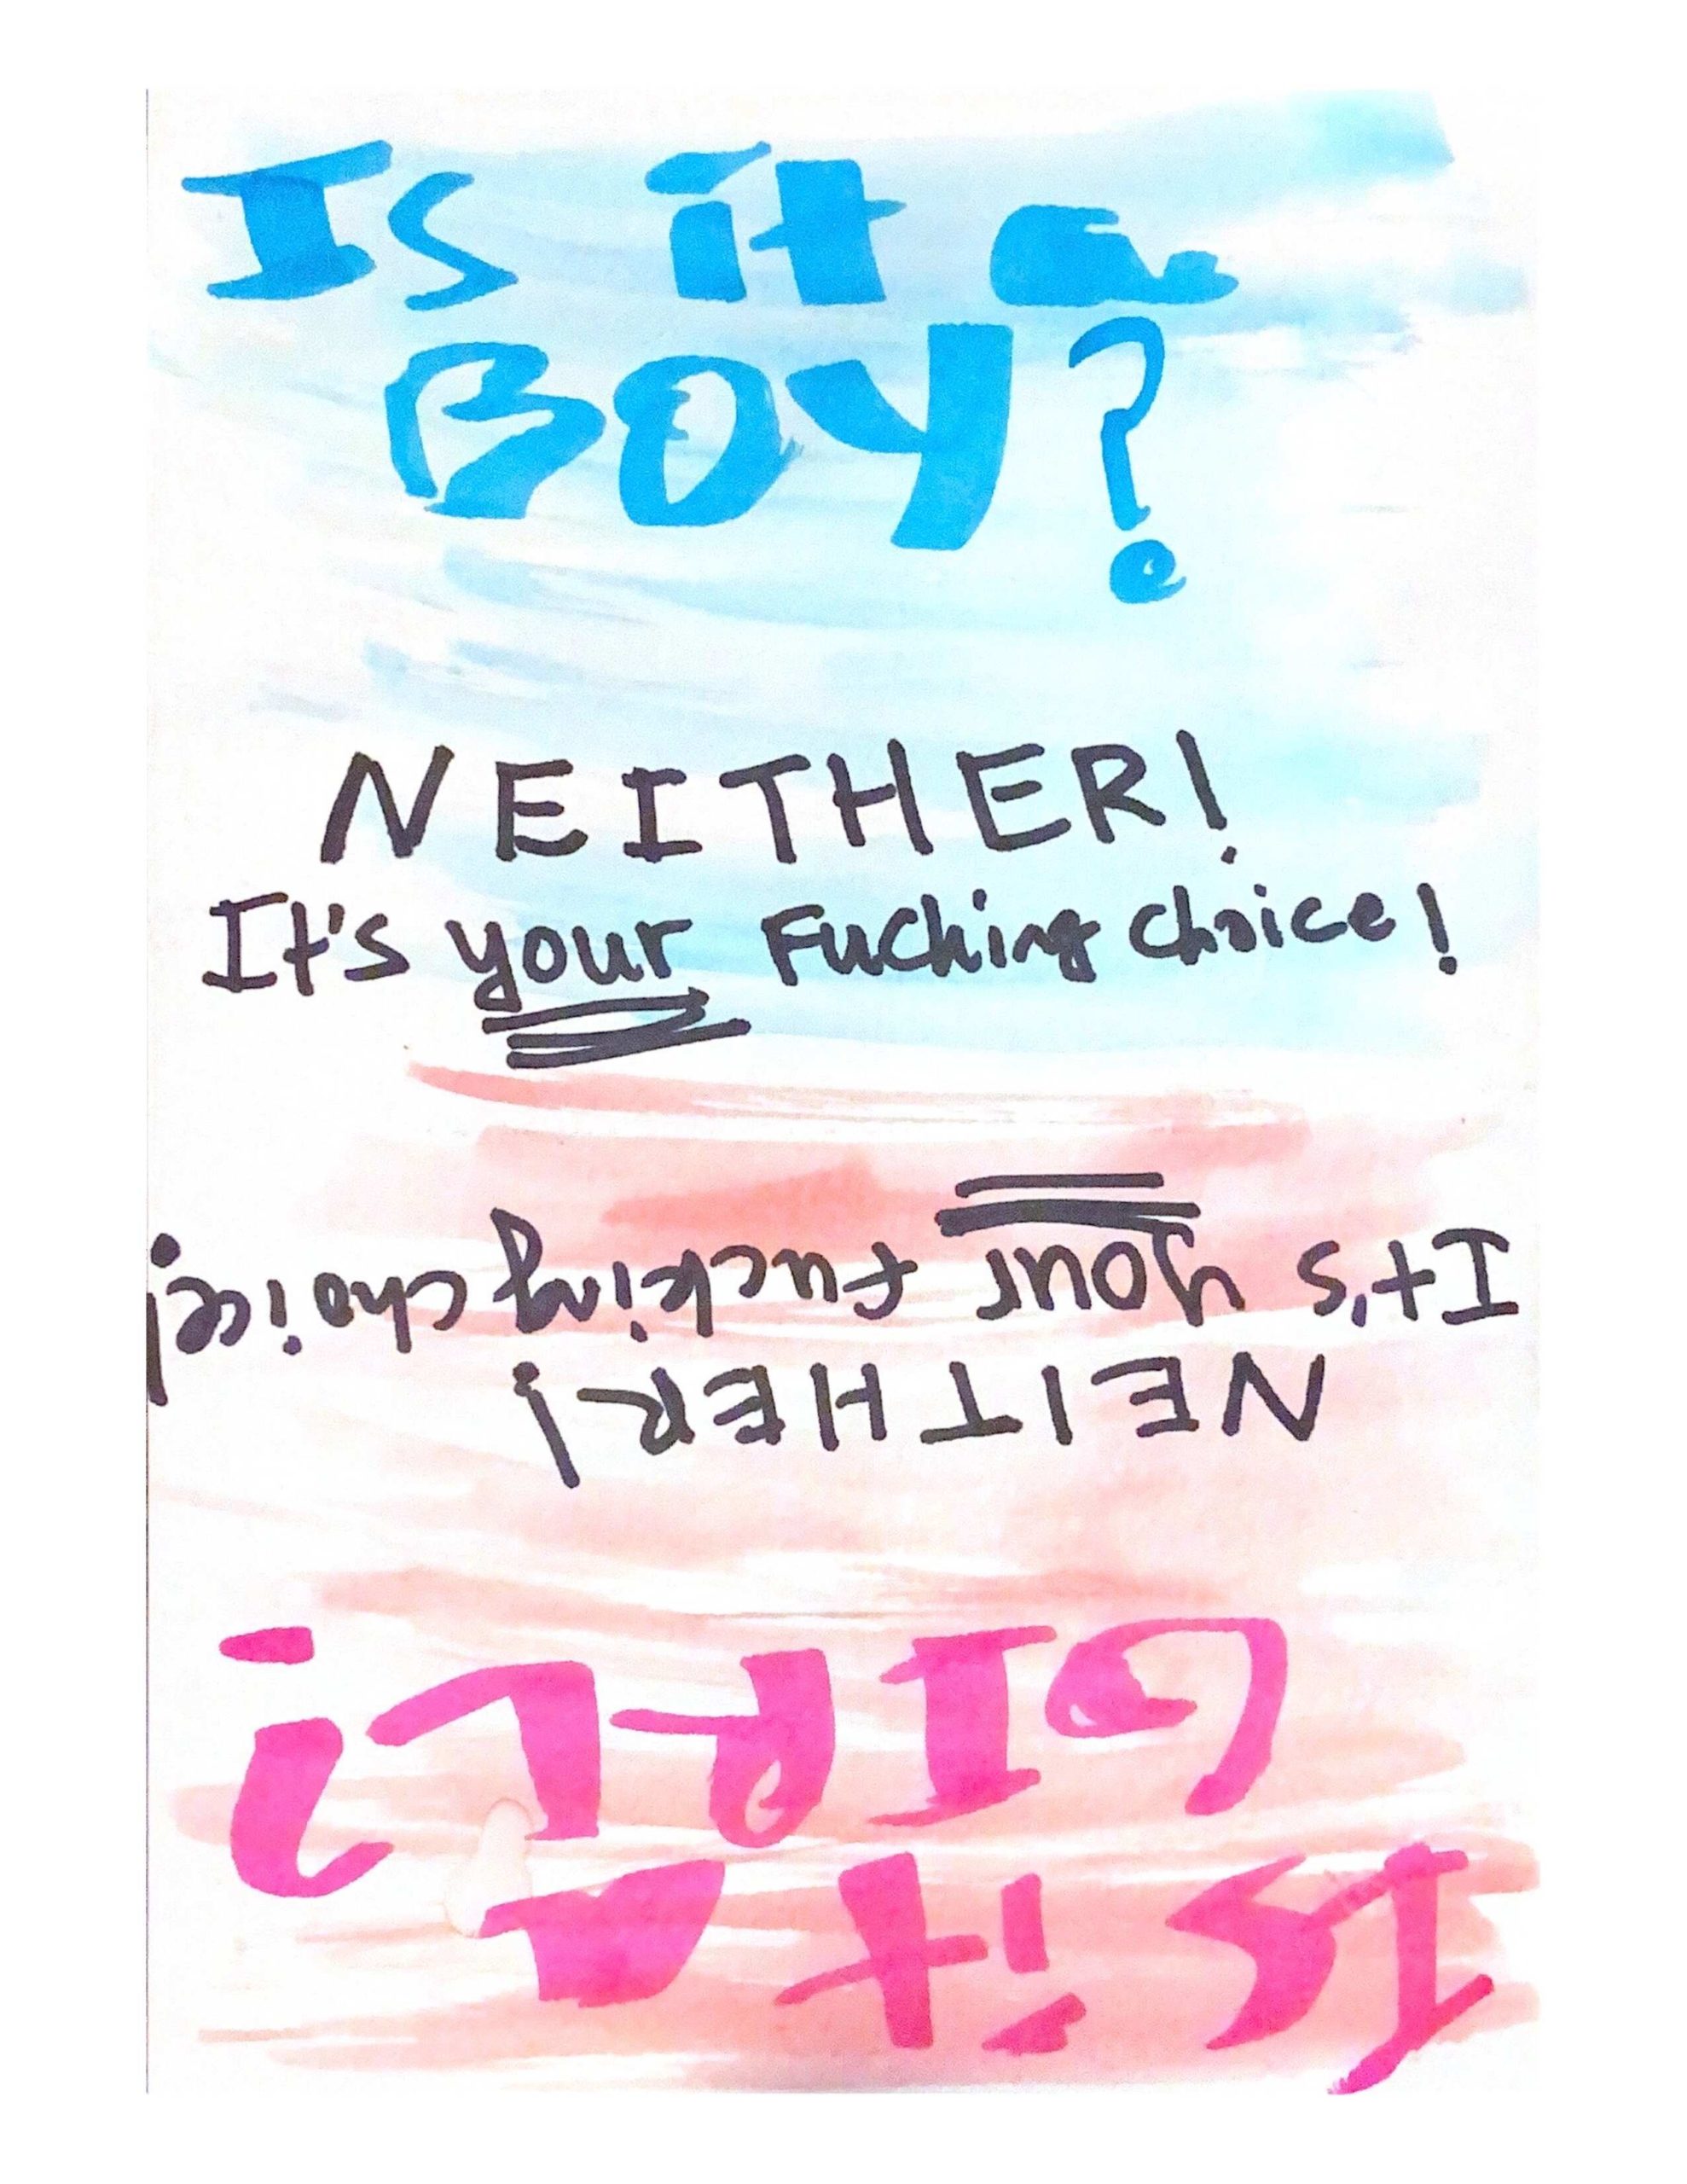 Is it a
BOY?
NEITHER!
It's your Fucking choice!
Is it a
GIRL?
NEITHER!
It's your fucking choice!